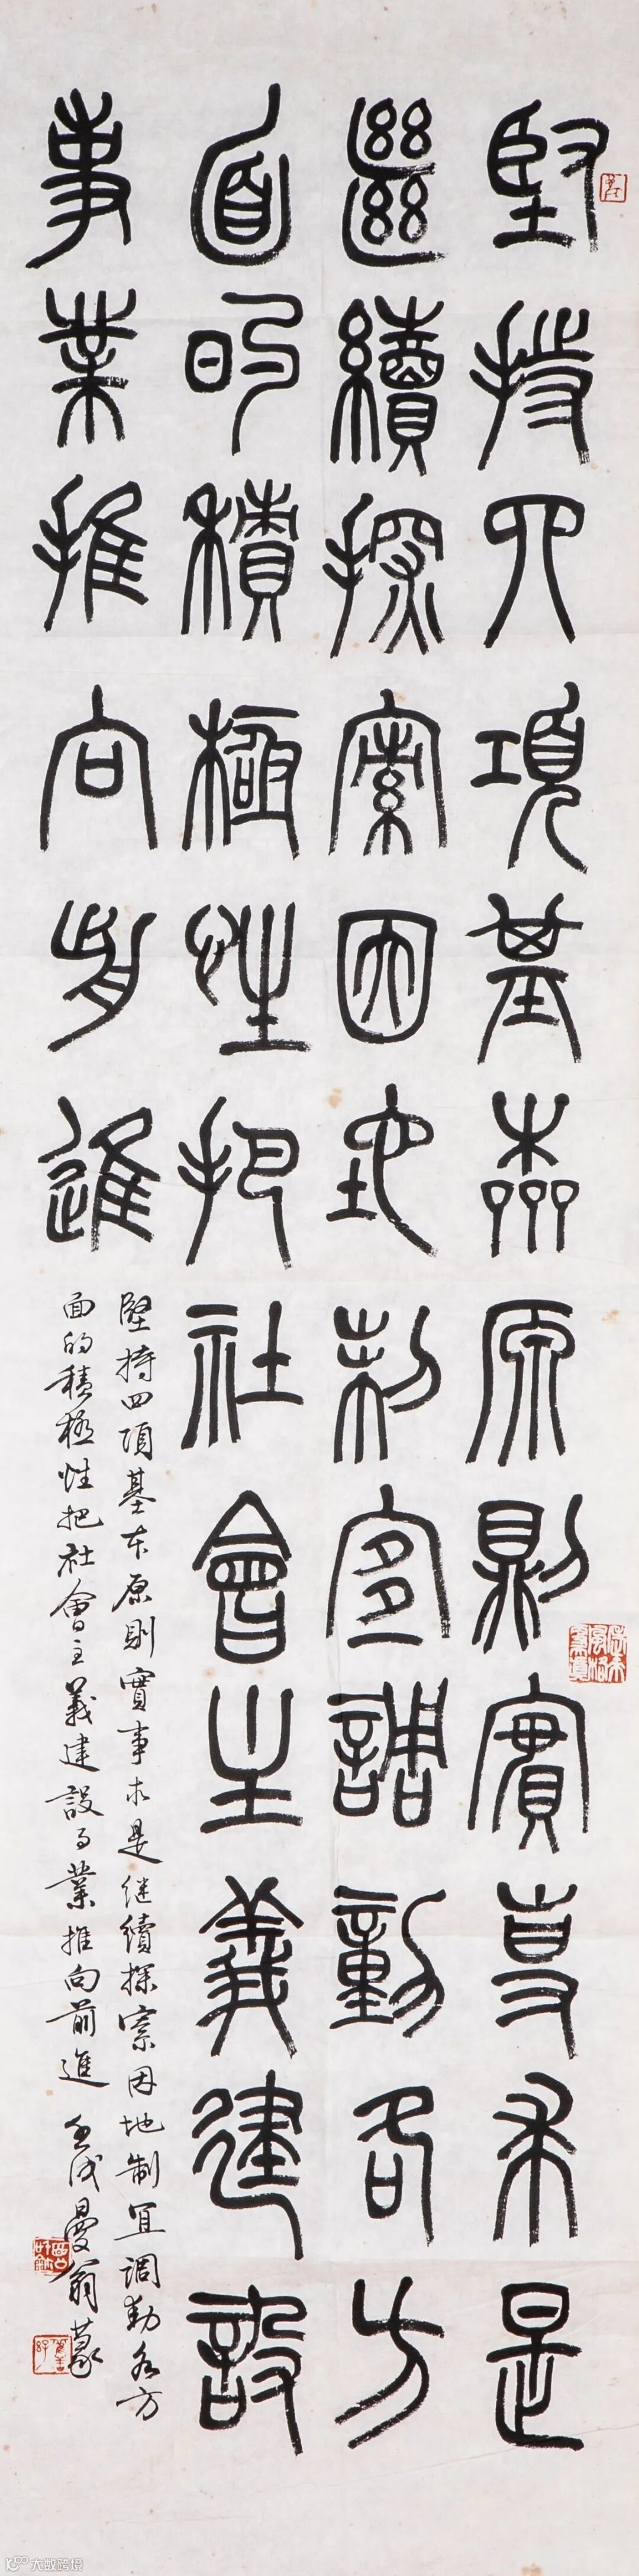 堅持四項基本原則實事求是
繼續探索因地制宜調動各方
面的積極性把社會主義建設
事業推向前進
堅持四項基本原則實事求是继續探索因地制宜調動各方
面的積極性把社會主義建設事業推向前進 壬戌曼翁篆
大蚁跨境